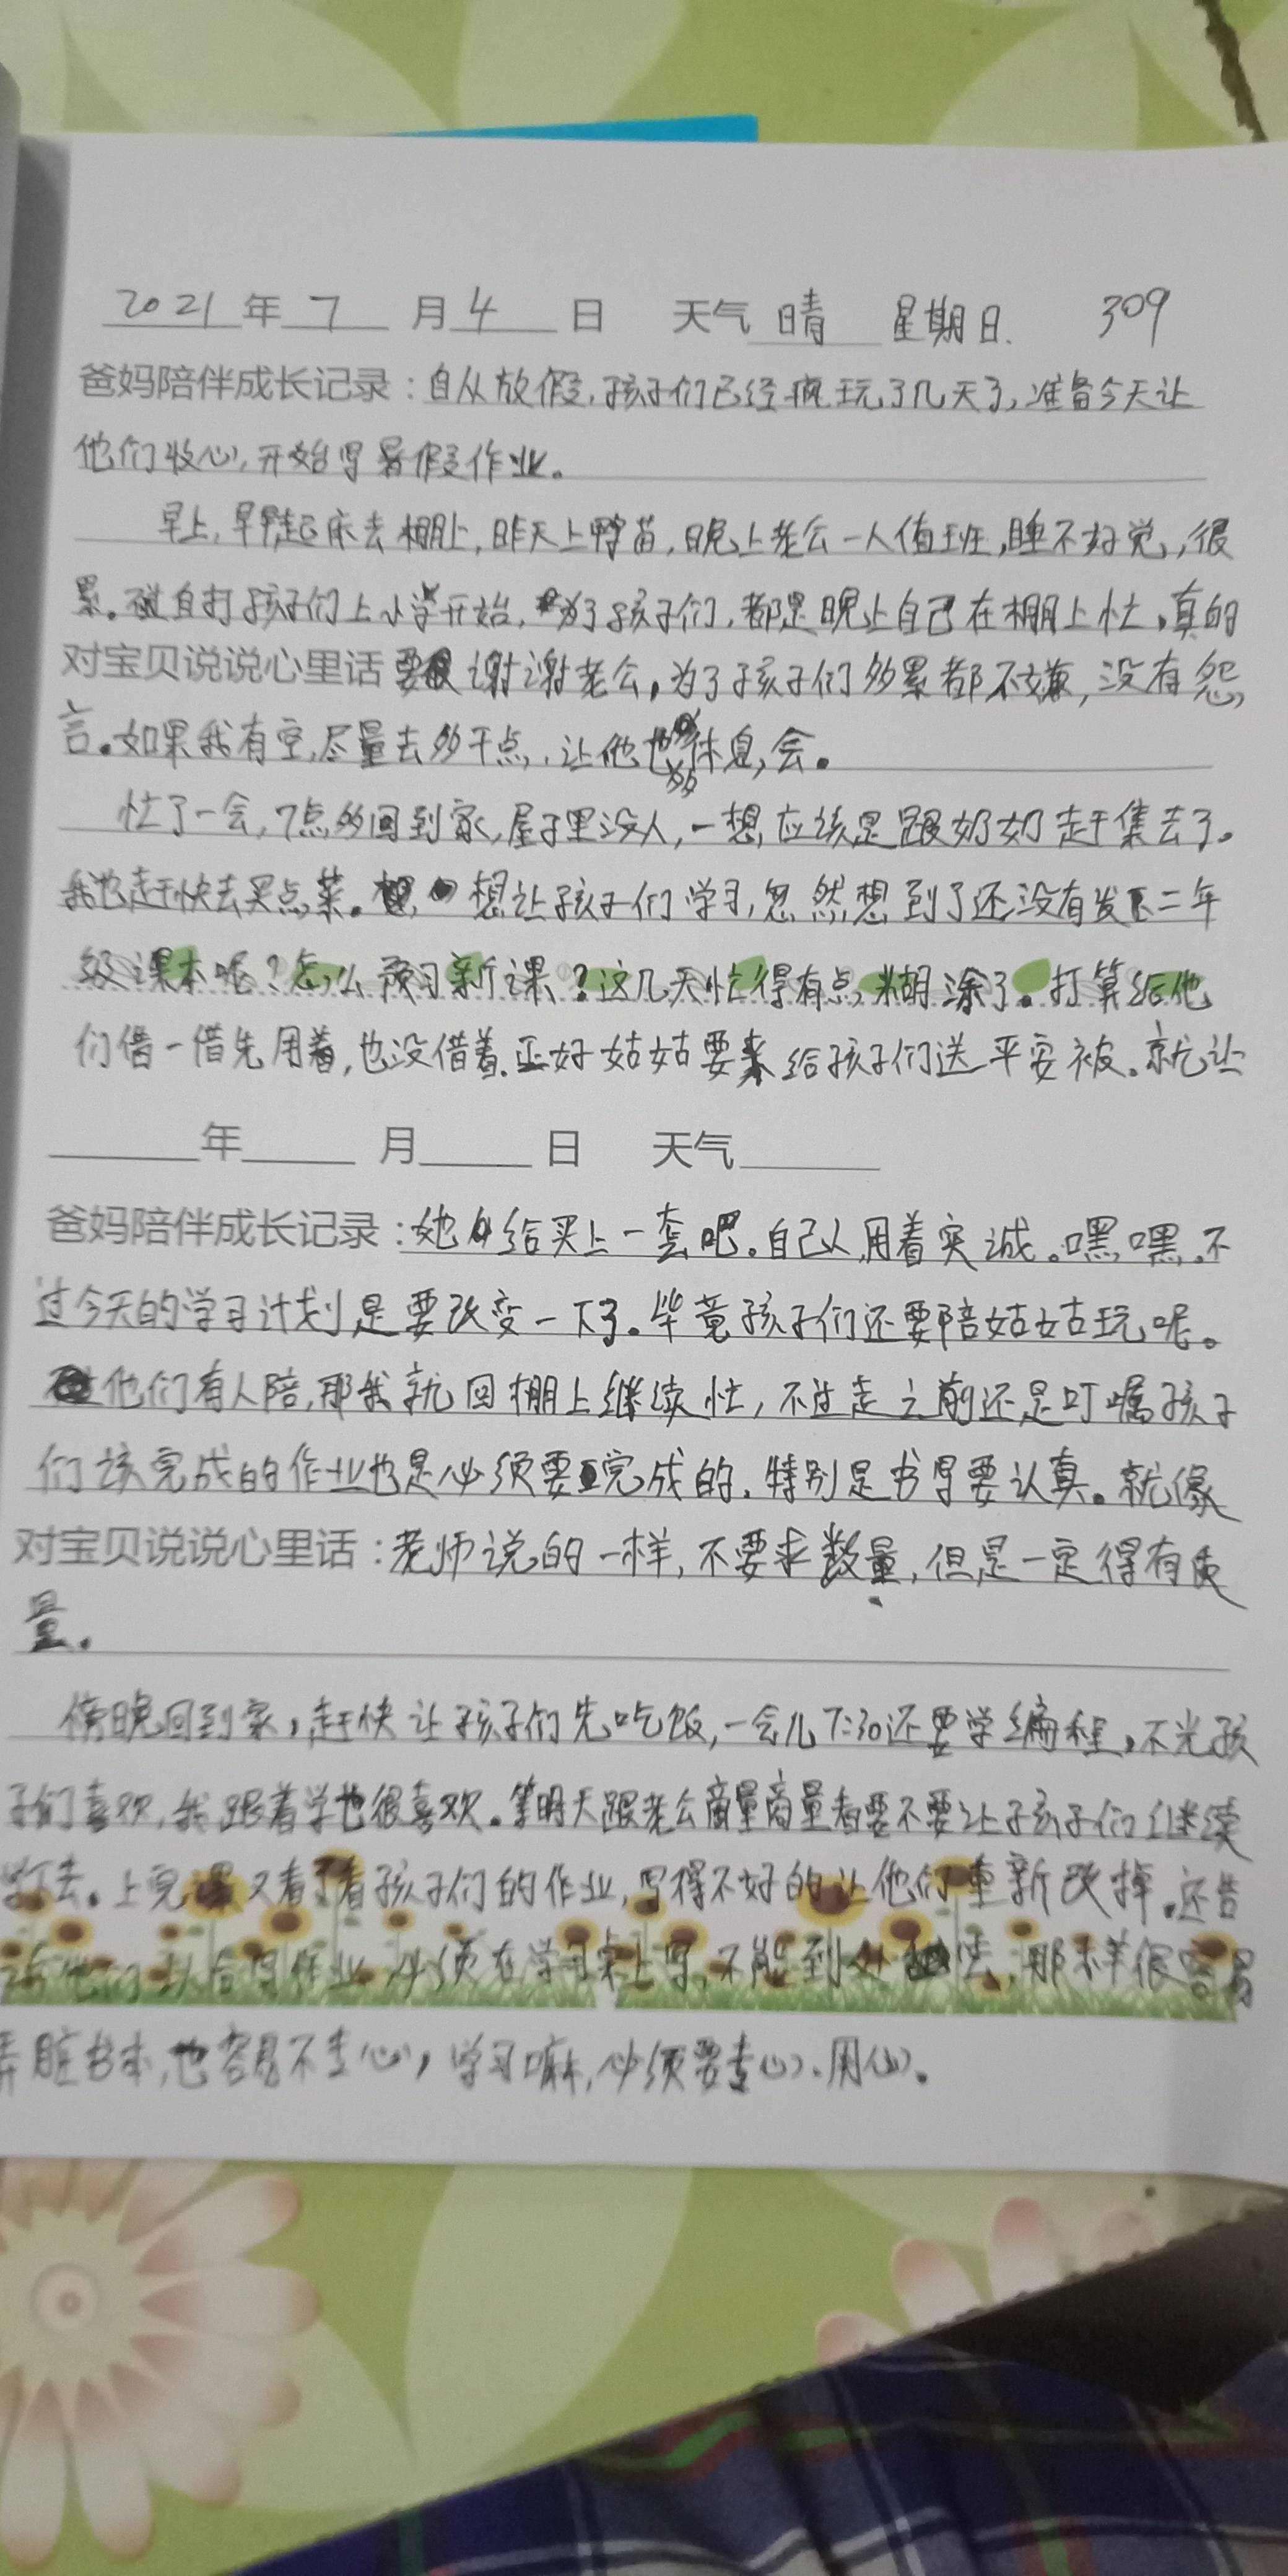 2021年7月4日 天气晴 星期日. 309
爸妈陪伴成长记录:自从放假,孩子们已经疯玩了几天了,准备今天让
他们收心,开始写暑假作业。
早上,早早起床去棚上,昨天上鸭苗,晚上老公一人值班,睡不好觉,很
累。自打孩子们上小学开始,为了孩子们,都是晚上自己在棚上忙,真的
对宝贝说说心里话要谢谢老公,为了孩子们多累都不嫌,没有怨
言。如果我有空,尽量去多干点,让他也多休息会。
忙了一会,7点多回到家,屋子里没人,一想应该是跟奶奶赶集去了。
我也赶快去买点菜。想让孩子们学习,忽然想到了还没有发下二年
级课本呢?怎么预习新课?这几天忙得有点糊涂了。打算给他
们借一借先用着,也没借着.正好姑姑要来给孩子们送平安被.就让
年 月 日 天气
爸妈陪伴成长记录:她给买上一套吧。自己人用着实诚。嘿嘿.不
过今天的学习计划是要改变一下了.毕竟孩子们还要陪姑姑玩呢。
他们有人陪,那我就回棚上继续忙,不过走之前还是叮嘱孩子
们该完成的作业也是必须要完成的.特别是书写要认真。就像
对宝贝说说心里话:老师说的一样,不要求数量,但是一定得有质
量.
傍晚回到家,赶快让孩子们先吃饭,一会儿7:30还要学编程,不光孩
子们喜欢,我跟着学也很喜欢.等明天跟老公商量商量看要不要让孩子们继续
学下去.上完课又看了看孩子们的作业,写得不好的让他们重新改掉.还告
诉他们以后写作业必须在学习桌上写,不能到处去,那样很容易
弄脏书本,也容易不专心,学习嘛,必须要专心.用心.